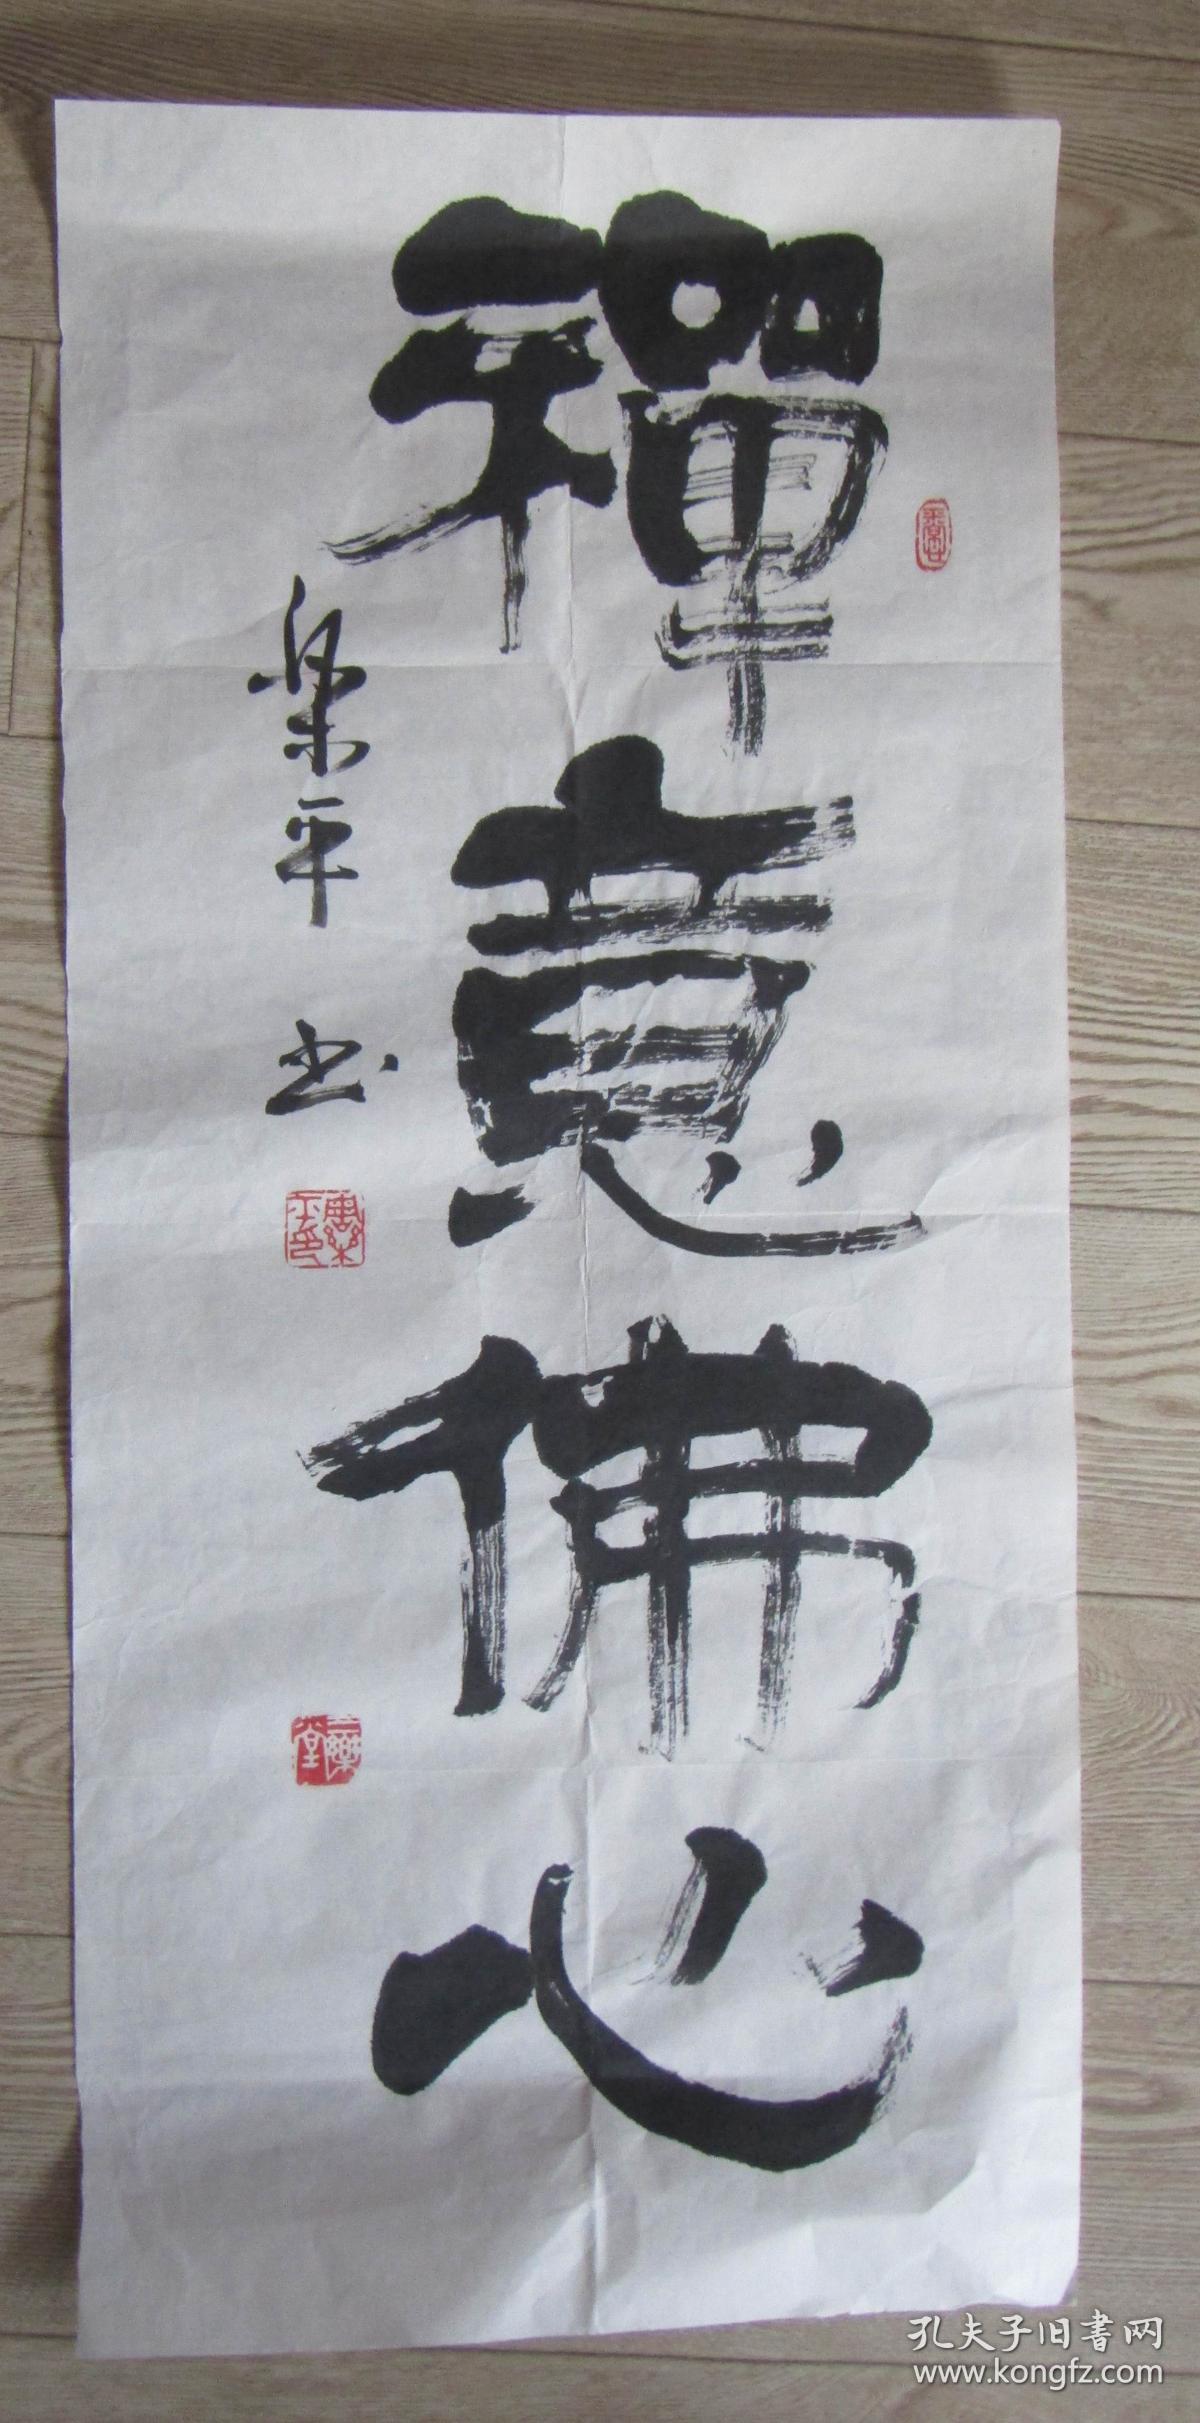 禪意佛心
樂平書
孔夫子旧書网
www.kongfz.com